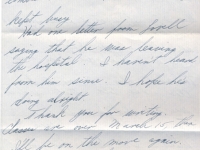 kept busy.
Had one letter from Lovell
saying that he was leaving
the hospital. I haven't heard
from him since. I hope he's
doing alright.
Thank you for writing.
Classes are over March 15, then
I'll be on the move again.